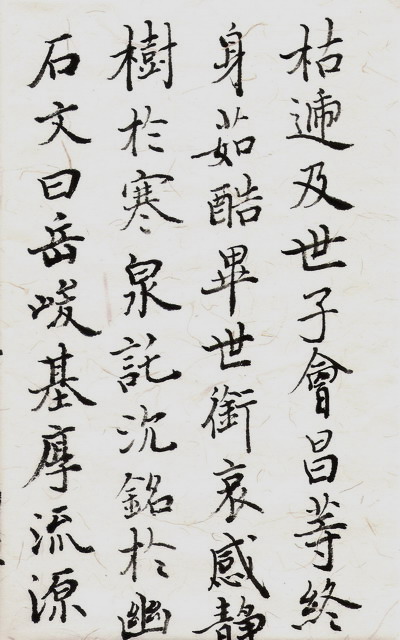 枯遞及世子會昌等終
身茹酷畢世銜哀感靜
樹於寒泉託沉銘於幽
石文曰岳峻基厚流源